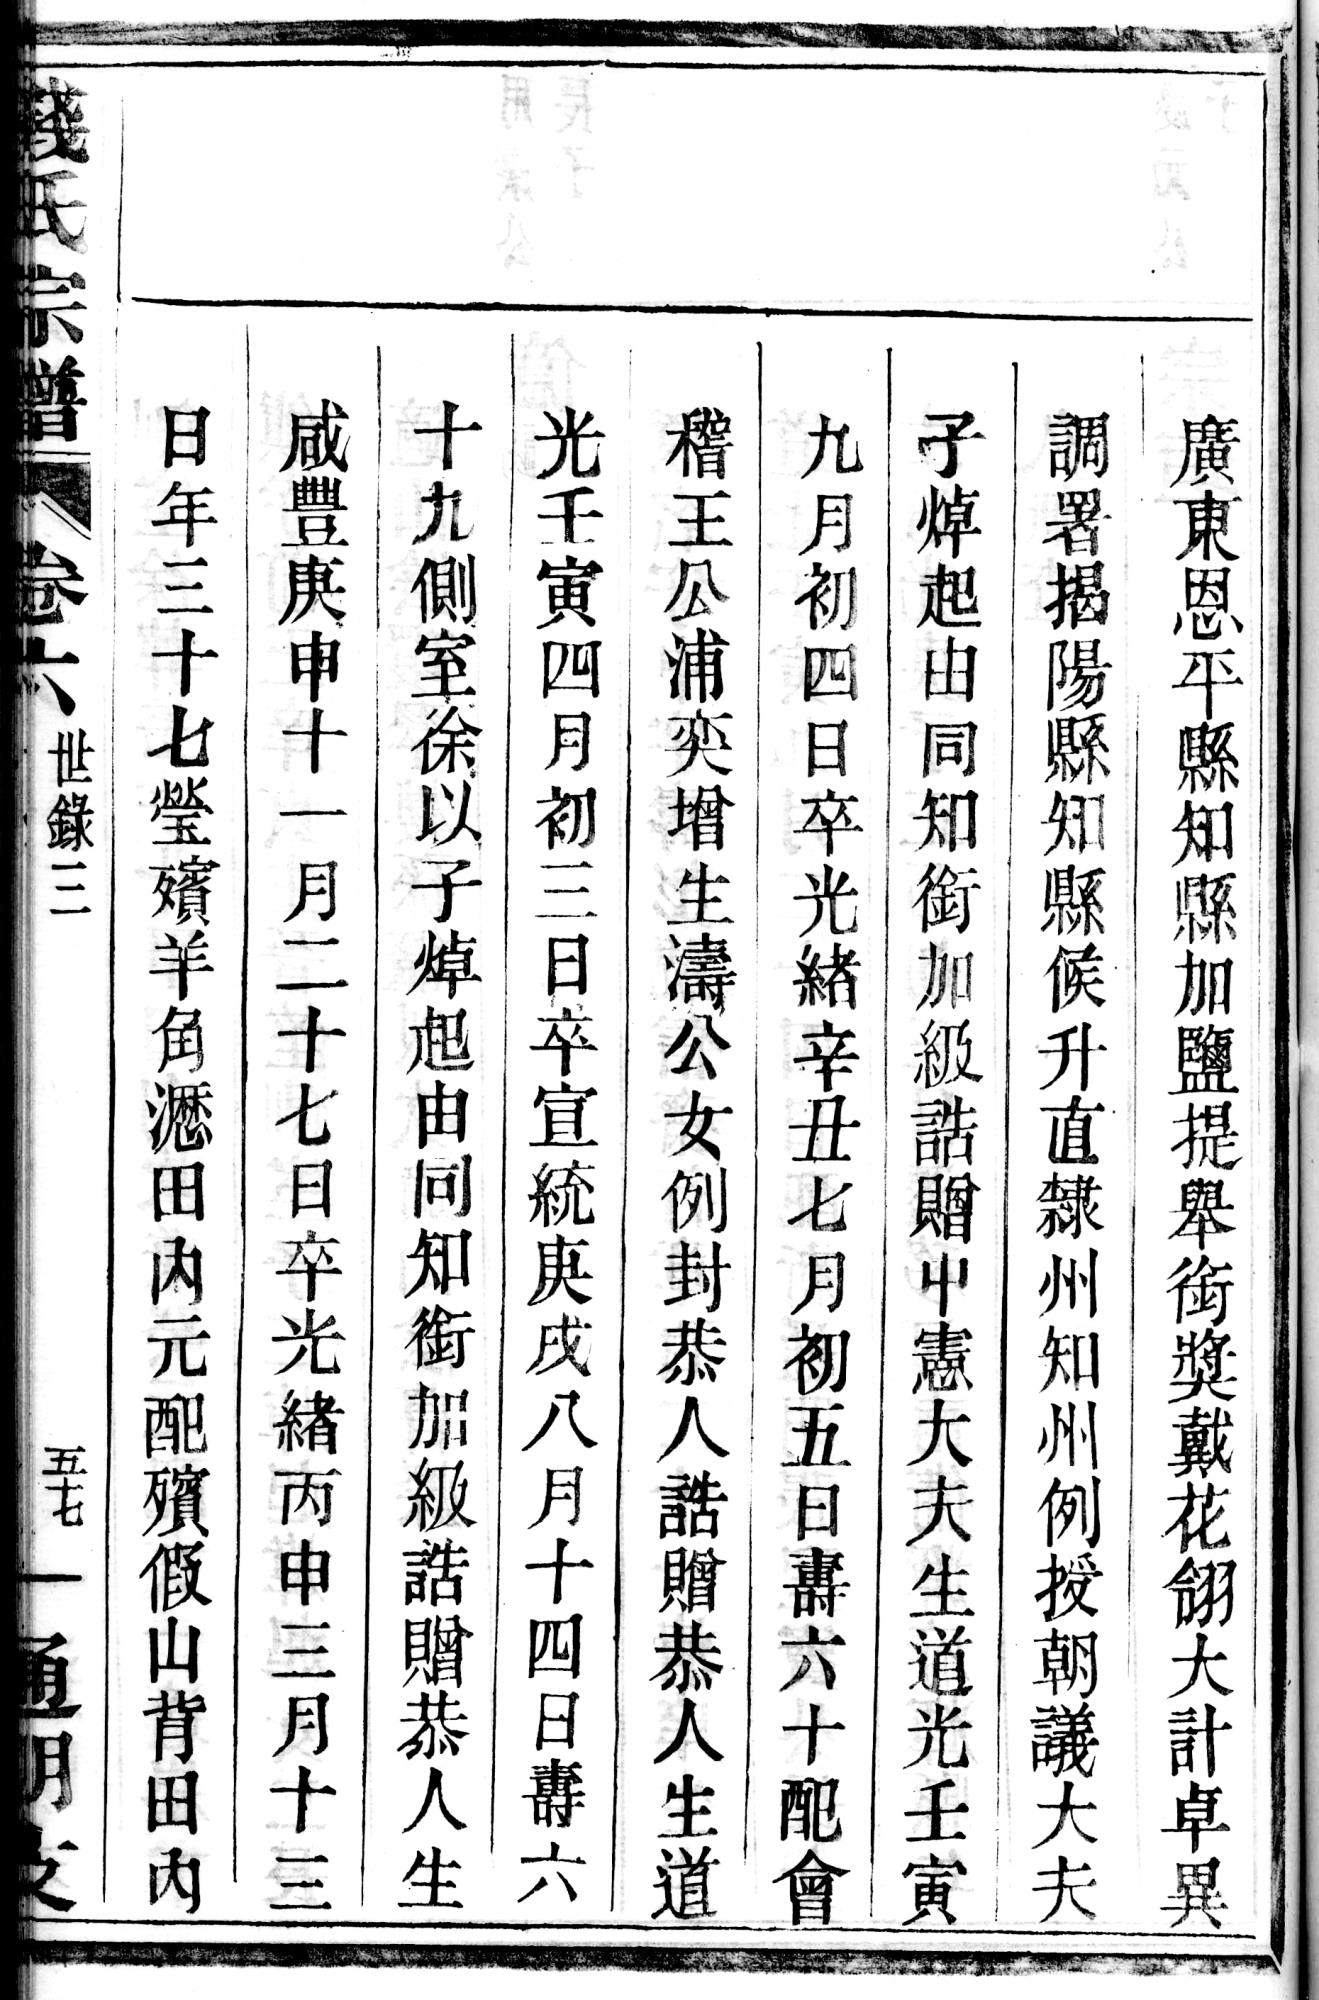 廣東恩平縣知縣加鹽提舉銜獎戴花翎大計卓異
調署揭陽縣知縣候升直隸州知州例授朝議大夫
子焯起由同知銜加級誥贈中憲大夫生道光壬寅
九月初四日卒光緒辛丑七月初五日壽六十配會
稽王公浦奕增生濤公女例封恭人誥贈恭人生道
光壬寅四月初三日卒宣統庚戌八月十四日壽六
十九側室徐以子焯起由同知銜加級誥贈恭人生
咸豐庚申十一月二十七日卒光緒丙申三月十三
日年三十七塋殯羊角瀝田內元配殯假山背田內
錢氏宗譜 卷六 世錄三 五十七 通明支